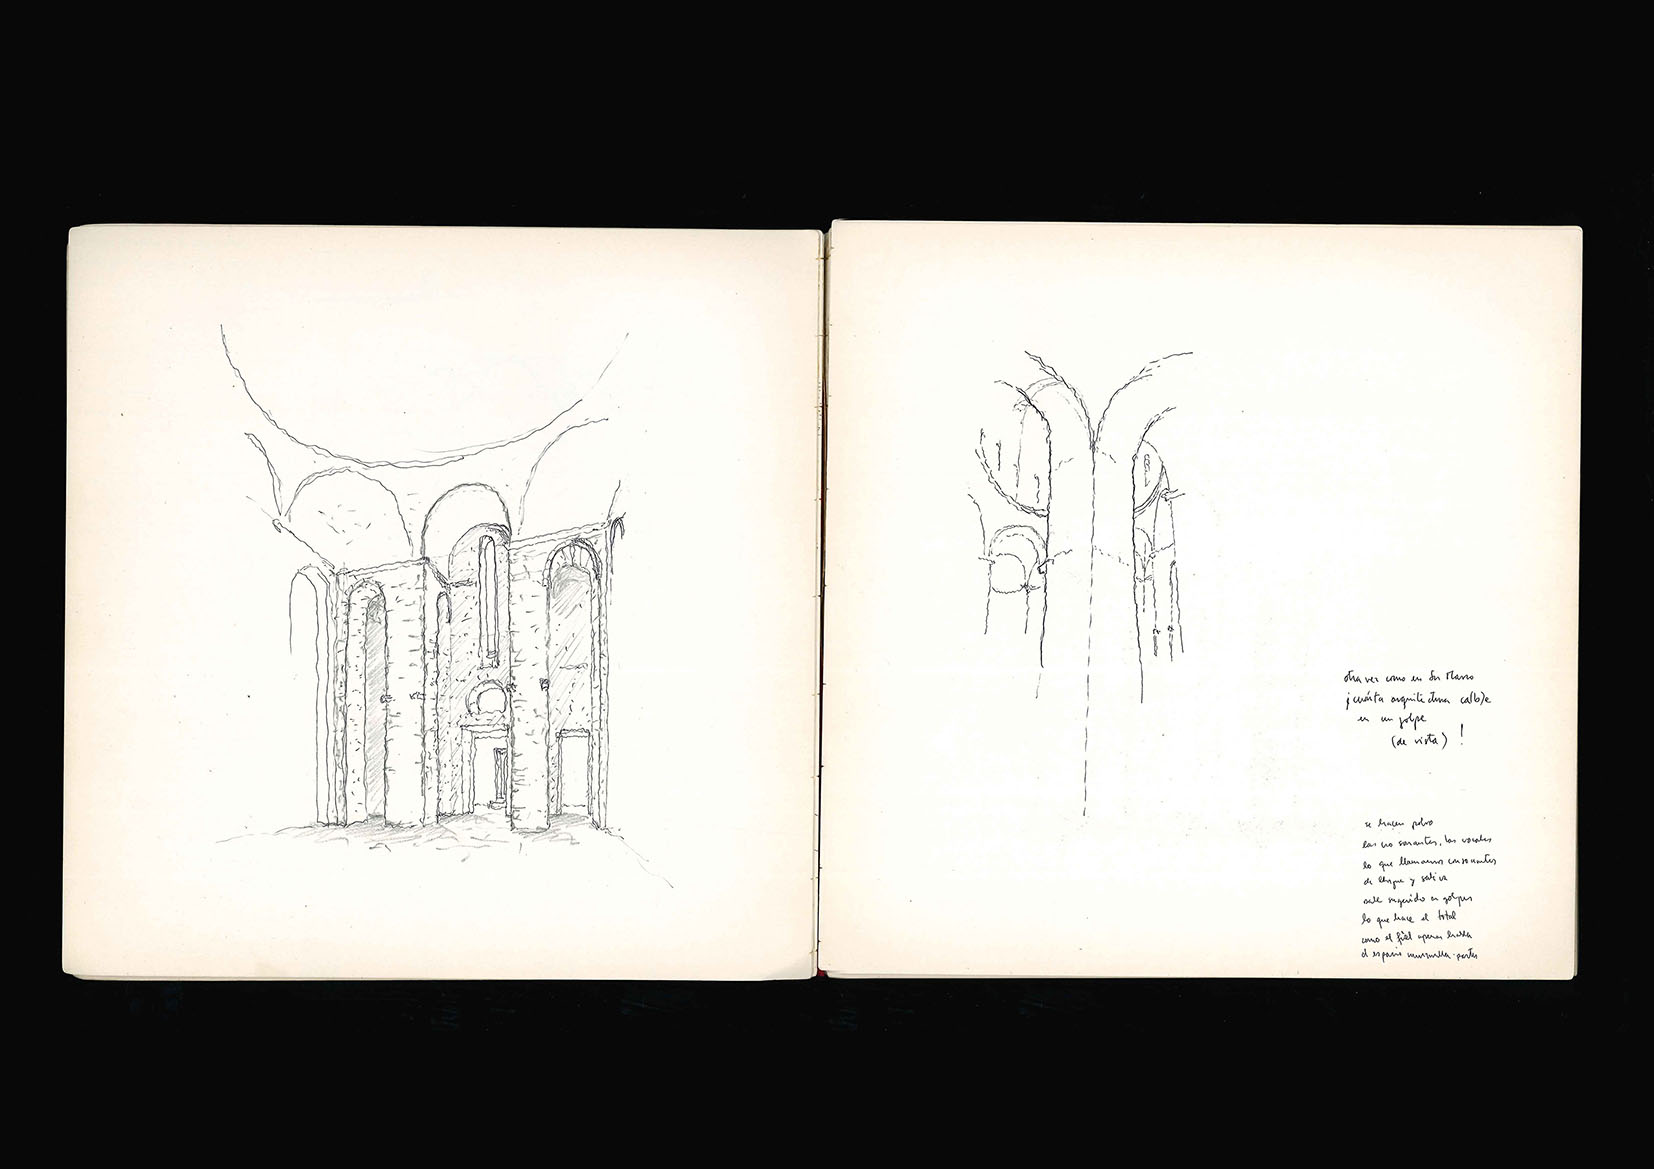 otra vez como en San Marco
¡cuánta arquitectura ca(b)e
en un golpe
(de vista) !
se hacen polvo
las no sonantes, las vocales
lo que llamamos consonantes
de lengua y saliva
sale seguido en golpes
lo que hace el total
como el fiel apenas habla
el espacio murmulla partes